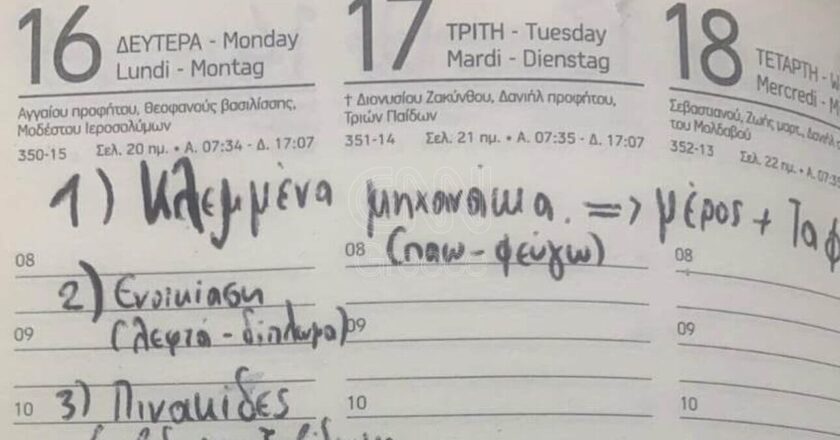 16 ΔΕΥΤΕΡΑ - Monday
Lundi - Montag
Αγγαίου προφήτου, Θεοφανούς βασιλίσσης,
Μοδέστου Ιεροσολύμων
350-15 Σελ. 20 ημ. • Α. 07:34 - Δ. 17:07
17 ΤΡΙΤΗ - Tuesday
Mardi - Dienstag
† Διονυσίου Ζακύνθου, Δανιήλ προφήτου,
Τριών Παίδων
351-14 Σελ. 21 ημ. • Α. 07:35 - Δ. 17:07
18 ΤΕΤΑΡΤΗ -
Mercredi -
Σεβαστιανού, Ζωής μαρτ.,
του Μολδαβού
352-13 Σελ. 22 ημ. • Α.
1) Κλεμμένα μηχανάκια. => μέρος + Τα
08 08 (παω - φεύγω) 08
2) Ενοικίαση
09 (λεφτά - δίπλωμα) 09 09
10 3) Πινακίδες 10 10
CNN
Greece